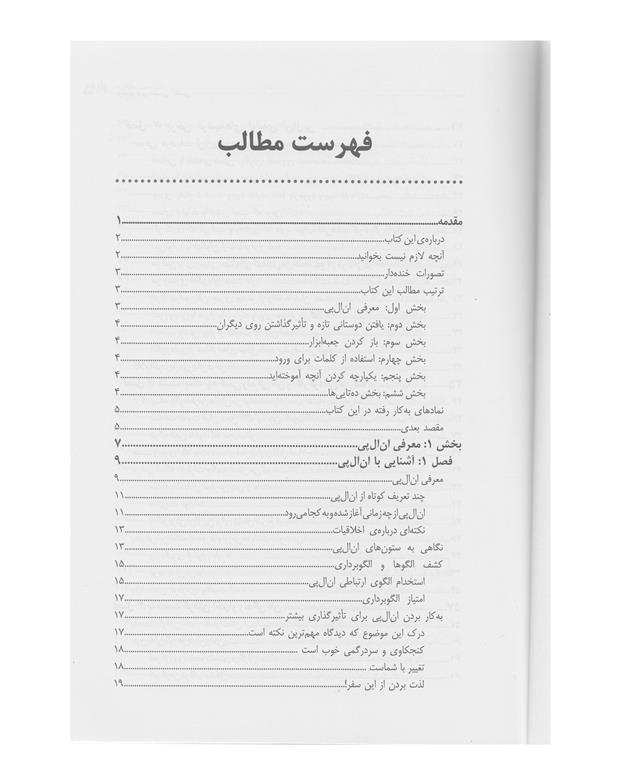 فهرست مطالب
مقدمه........................۱
درباره‌ی این کتاب........................۲
آنچه لازم نیست بخوانید........................۲
تصورات خنده‌دار........................۳
ترتیب مطالب این کتاب........................۳
بخش اول: معرفی ان‌ال‌پی........................۳
بخش دوم: یافتن دوستانی تازه و تأثیرگذاشتن روی دیگران........................۴
بخش سوم: باز کردن جعبه‌ابزار........................۴
بخش چهارم: استفاده از کلمات برای ورود........................۴
بخش پنجم: یکپارچه کردن آنچه آموخته‌اید........................۴
بخش ششم: بخش ده‌تایی‌ها........................۴
نمادهای به‌کار رفته در این کتاب........................۵
مقصد بعدی........................۵
بخش ۱: معرفی ان‌ال‌پی........................۷
فصل ۱: آشنایی با ان‌ال‌پی........................۹
معرفی ان‌ال‌پی........................۹
چند تعریف کوتاه از ان‌ال‌پی........................۱۱
ان‌ال‌پی از چه زمانی آغاز شده و به کجا می‌رود........................۱۱
نکته‌ای درباره‌ی اخلاقیات........................۱۳
نگاهی به ستون‌های ان‌ال‌پی........................۱۳
کشف الگوها و الگوبرداری........................۱۵
استخدام الگوی ارتباطی ان‌ال‌پی........................۱۵
امتیاز الگوبرداری........................۱۷
به‌کار بردن ان‌ال‌پی برای تأثیرگذاری بیشتر........................۱۷
درک این موضوع که دیدگاه مهم‌ترین نکته است........................۱۷
کنجکاوی و سردرگمی خوب است........................۱۸
تغییر با شماست........................۱۸
لذت بردن از این سفر!........................۱۹